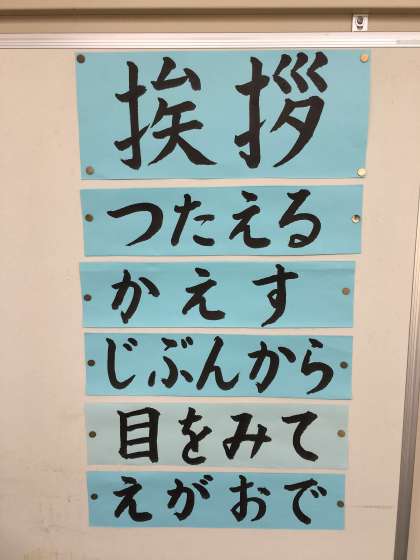 挨拶
つたえる
かえす
じぶんから
目をみて
えがおで